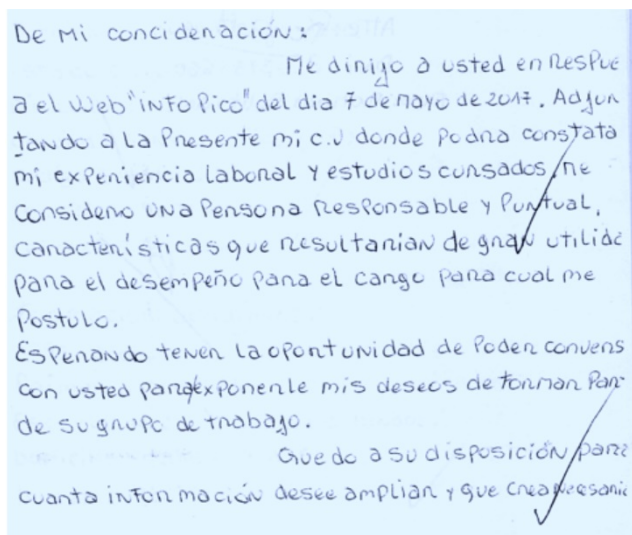 De mi concideración:
Me dirijo a usted en Respue
a el Web "info Pico" del dia 7 de mayo de 2017. Adjun
tando a la Presente mi c.v donde podra constata
mi experiencia laboral y estudios cursados, me
Considero una Persona Responsable y Puntual,
características que resultarian de gran utilida
para el desempeño para el cargo para cual me
Postulo.
Esperando tener la oportunidad de Poder convers
con usted para exponerle mis deseos de formar Par
de su grupo de trabajo.
Quedo a su disposición para
cuanta información desee ampliar y que crea necesaria